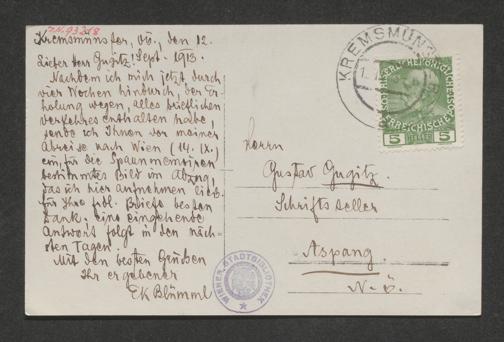 J.N. 93258
Kremsmünster, OÖ., den 12.
Sept. 1913.
Lieber Herr Gugitz!
Nachdem ich mich jetzt durch
vier Wochen hindurch, der Er-
holung wegen, alles brieflichen
Verkehres enthalten habe,
sende ich Ihnen vor meiner
Abreise nach Wien (14. IX.)
ein für die Spaunmemoiren
bestimmtes Bild im Abzug,
das ich hier aufnehmen ließ.
Für Ihre frdl. Briefe besten
Dank; eine eingehende
Antwort folgt in den näch-
sten Tagen.
Mit den besten Grüßen
Ihr ergebener
EK Blümml
KREMSMÜN
5 5
Herrn
Gustav Gugitz
Schriftsteller
Aspang
N.-Ö.
WIENER STADTBIBLIOTHEK